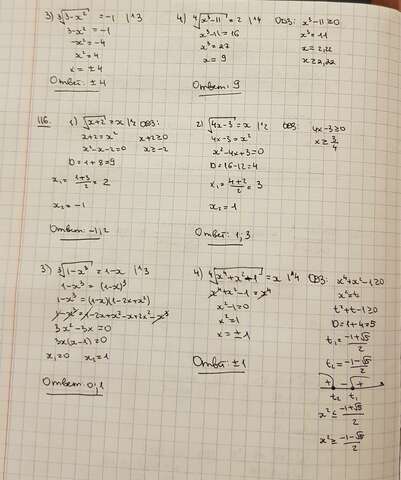 3) ∛(3-x²) = -1 |^3
3-x² = -1
-x² = -4
x² = 4
x = ±4
Ответ: ±4
4) ∜(x³-11) = 2 |^4 ОДЗ: x³-11≥0
x³-11 = 16 x³=11
x³ = 27 x = 2,22
x = 9 x≥2,22
Ответ: 9
116.
1) √(x+2) = x |^2 ОДЗ:
x+2 = x² x+2≥0
x²-x-2=0 x≥-2
D=1+8=9
x₁ = (1+3)/2 = 2
x₂ = -1
Ответ: -1; 2
2) √(4x-3) = x |^2 ОДЗ: 4x-3≥0
4x-3 = x² x≥3/4
x²-4x+3=0
D=16-12=4
x₁ = (4+2)/2 = 3
x₂ = 1
Ответ: 1; 3
3) ∛(1-x³) = 1-x |^3
1-x³ = (1-x)³
1-x³ = (1-x)(1-2x+x²)
1-x³ = 1-2x+x²-x+2x²-x³
3x²-3x=0
3x(x-1)=0
x₁=0 x₂=1
Ответ: 0; 1
4) ∜(x⁴+x²-1) = x |^4 ОДЗ: x⁴+x²-1≥0
x⁴+x²-1 = x⁴ x²=t
x²-1=0 t²+t-1≥0
x²=1 D=1+4=5
x = ±1 t₁ = (-1+√5)/2
Ответ: ±1 t₂ = (-1-√5)/2
+ - +
t₂ t₁
x² ≤ (-1+√5)/2
x² ≥ (-1-√5)/2